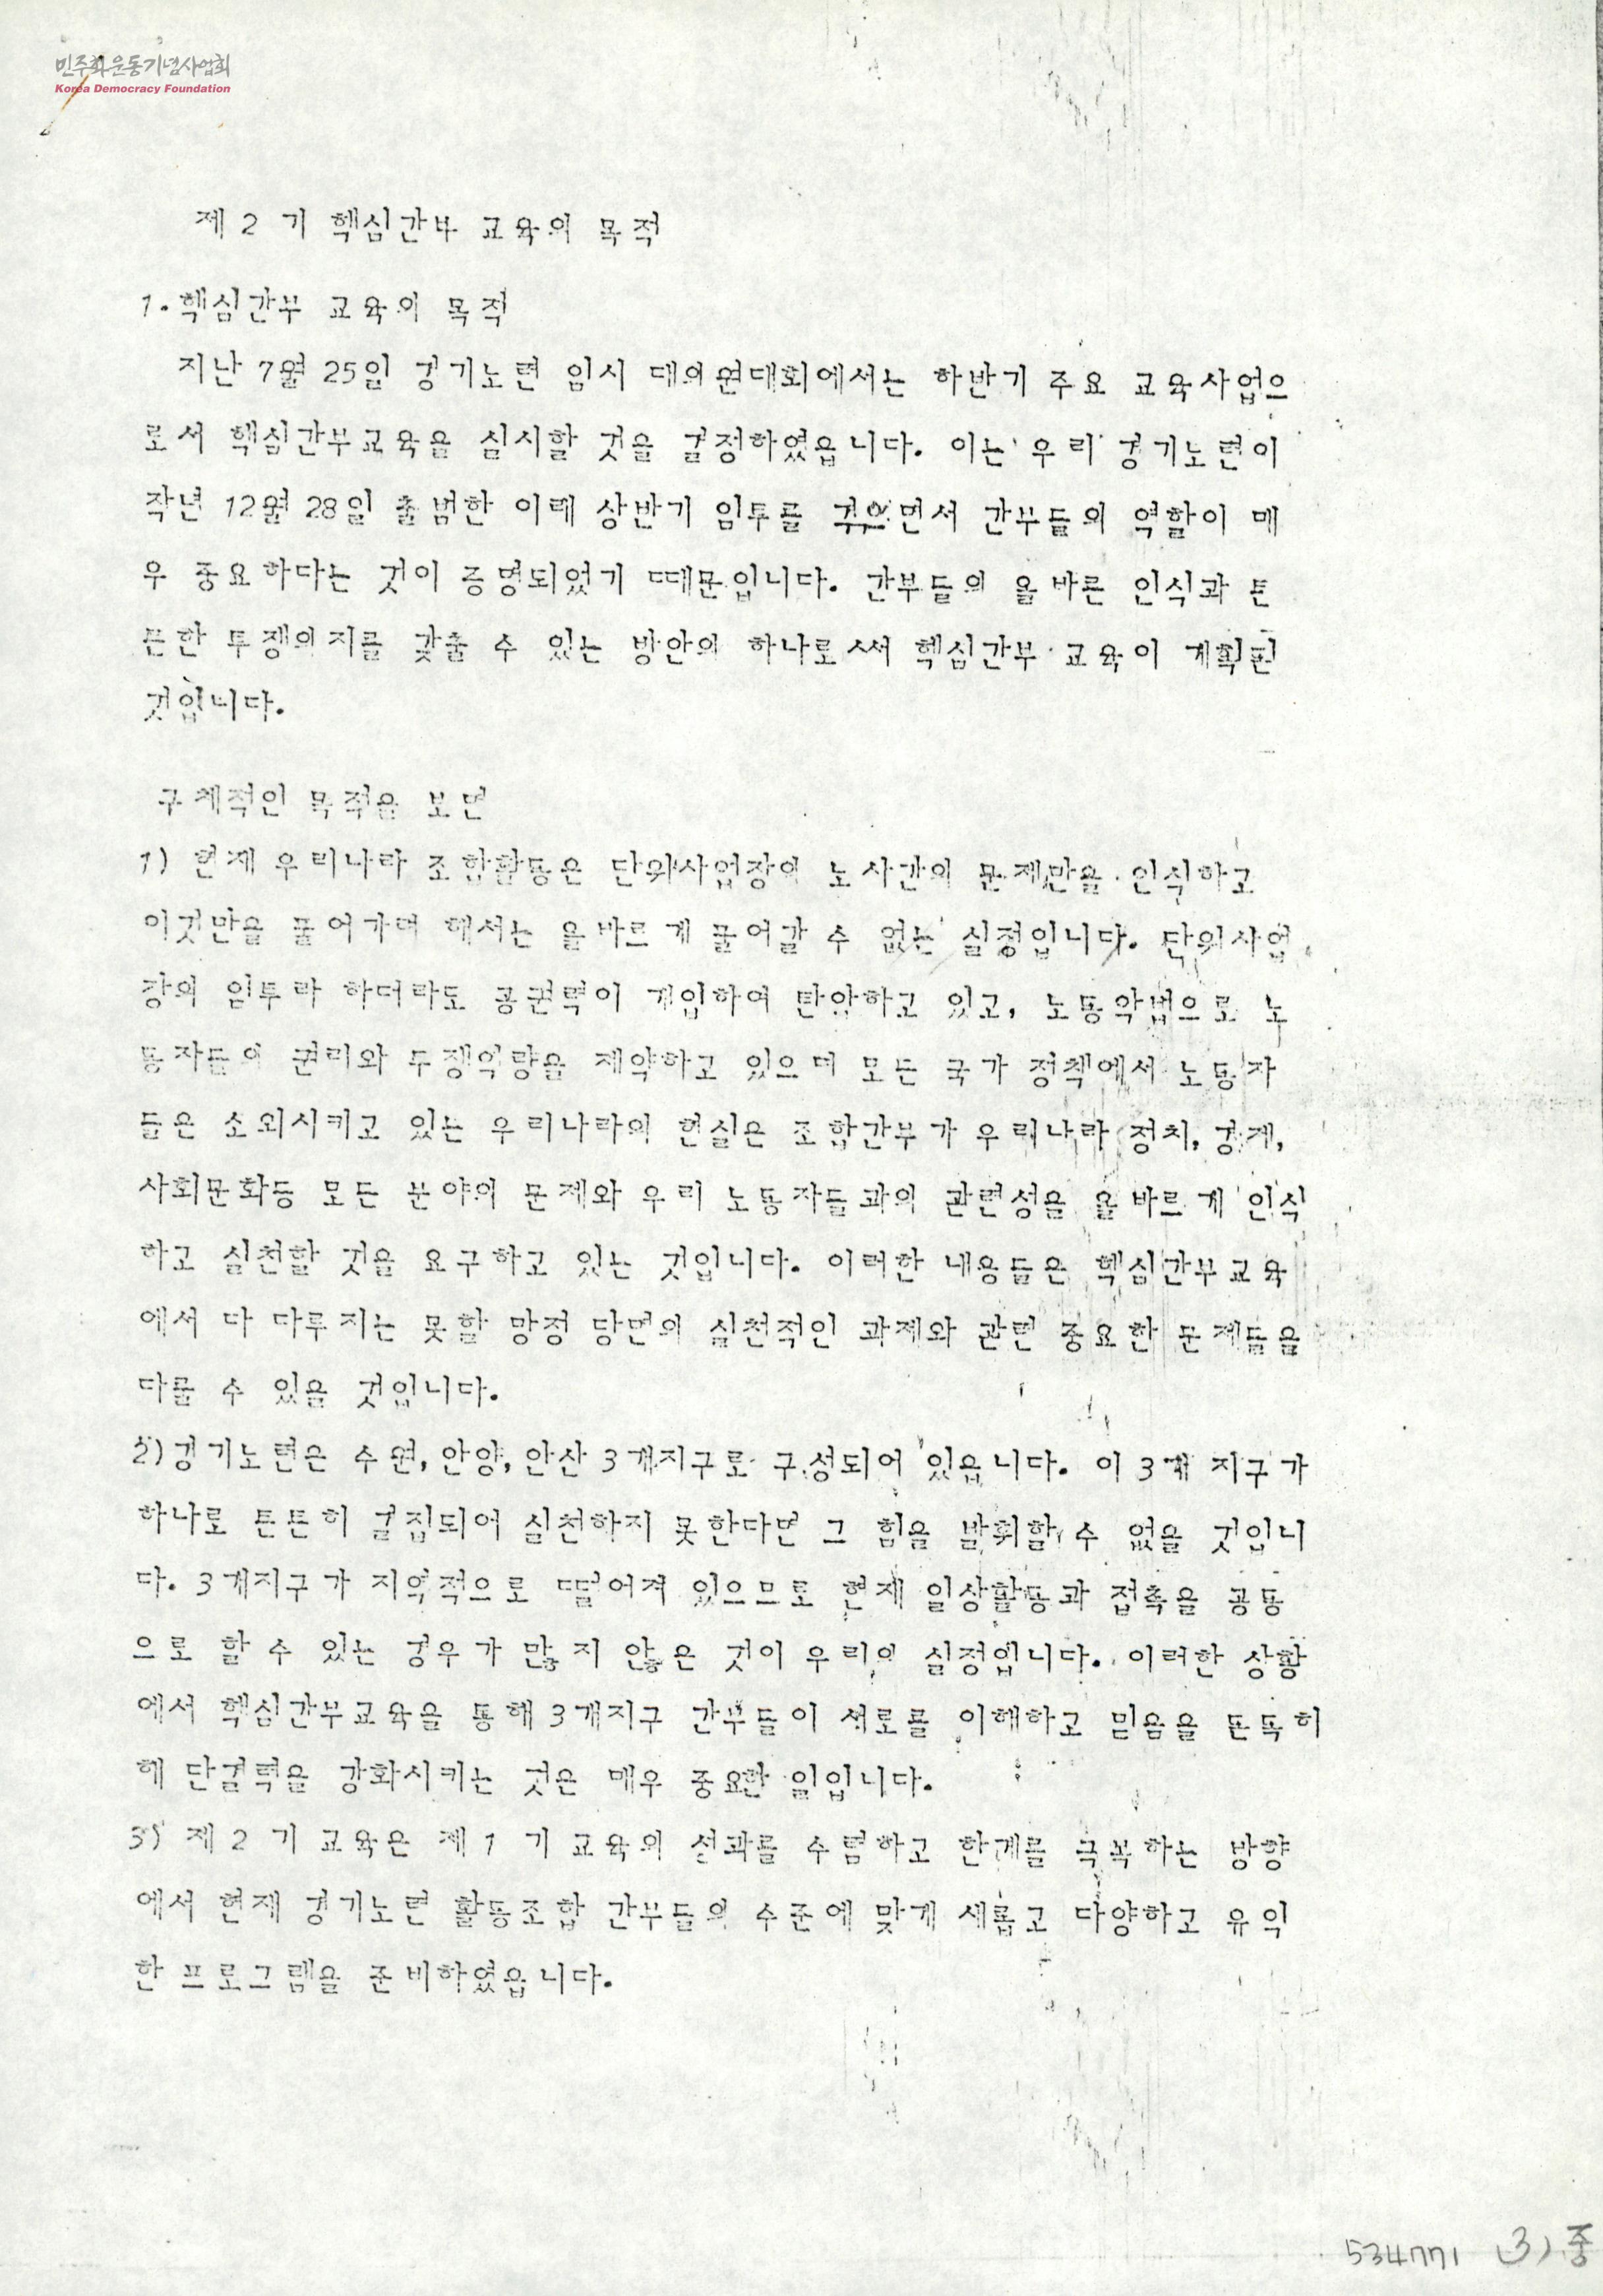 민주화운동기념사업회
Korea Democracy Foundation
제 2 기 핵심간부 교육의 목적
1. 핵심간부 교육의 목적
지난 7월 25일 경기노련 임시 대의원대회에서는 하반기 주요 교육사업으
로서 핵심간부교육을 실시할 것을 결정하였읍니다. 이는 우리 경기노련이
작년 12월 28일 출범한 이래 상반기 임투를 겪으면서 간부들의 역할이 매
우 중요하다는 것이 증명되었기 때문입니다. 간부들의 올바른 인식과 튼
튼한 투쟁의지를 갖출 수 있는 방안의 하나로써 핵심간부 교육이 계획된
것입니다.
구체적인 목적을 보면
1) 현재 우리나라 조합활동은 단위사업장의 노사간의 문제만을 인식하고
이것만을 풀어가려 해서는 올바르게 풀어갈 수 없는 실정입니다. 단위사업
장의 임투라 하더라도 공권력이 개입하여 탄압하고 있고, 노동악법으로 노
동자들의 권리와 투쟁역량을 제약하고 있으며 모든 국가 정책에서 노동자
들은 소외시키고 있는 우리나라의 현실은 조합간부가 우리나라 정치, 경제,
사회문화등 모든 분야의 문제와 우리 노동자들과의 관련성을 올바르게 인식
하고 실천할 것을 요구하고 있는 것입니다. 이러한 내용들은 핵심간부교육
에서 다 다루지는 못할 망정 당면의 실천적인 과제와 관련 중요한 문제들을
다룰 수 있을 것입니다.
2) 경기노련은 수원, 안양, 안산 3개지구로 구성되어 있읍니다. 이 3개 지구가
하나로 튼튼히 결집되어 실천하지 못한다면 그 힘을 발휘할 수 없을 것입니
다. 3개지구가 지역적으로 떨어져 있으므로 현재 일상활동과 접촉을 공동
으로 할 수 있는 경우가 많지 않은 것이 우리의 실정입니다. 이러한 상황
에서 핵심간부교육을 통해 3개지구 간부들이 서로를 이해하고 믿음을 돈독히
해 단결력을 강화시키는 것은 매우 중요한 일입니다.
3) 제 2 기 교육은 제 1 기 교육의 성과를 수렴하고 한계를 극복하는 방향
에서 현재 경기노련 활동조합 간부들의 수준에 맞게 새롭고 다양하고 유익
한 프로그램을 준비하였읍니다.
534771 (3) 중